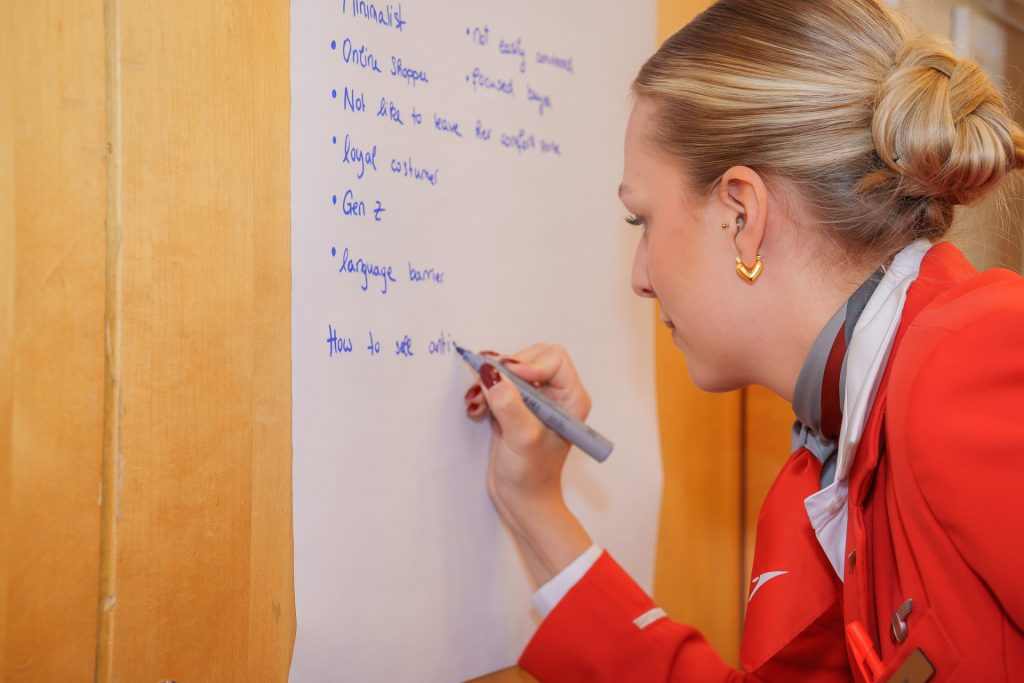 Minimalist
• not easily convinced
• Online Shopper
• focused buyer
• Not like to leave her comfort zone
• loyal costumer
• Gen Z
• language barrier
How to see anti